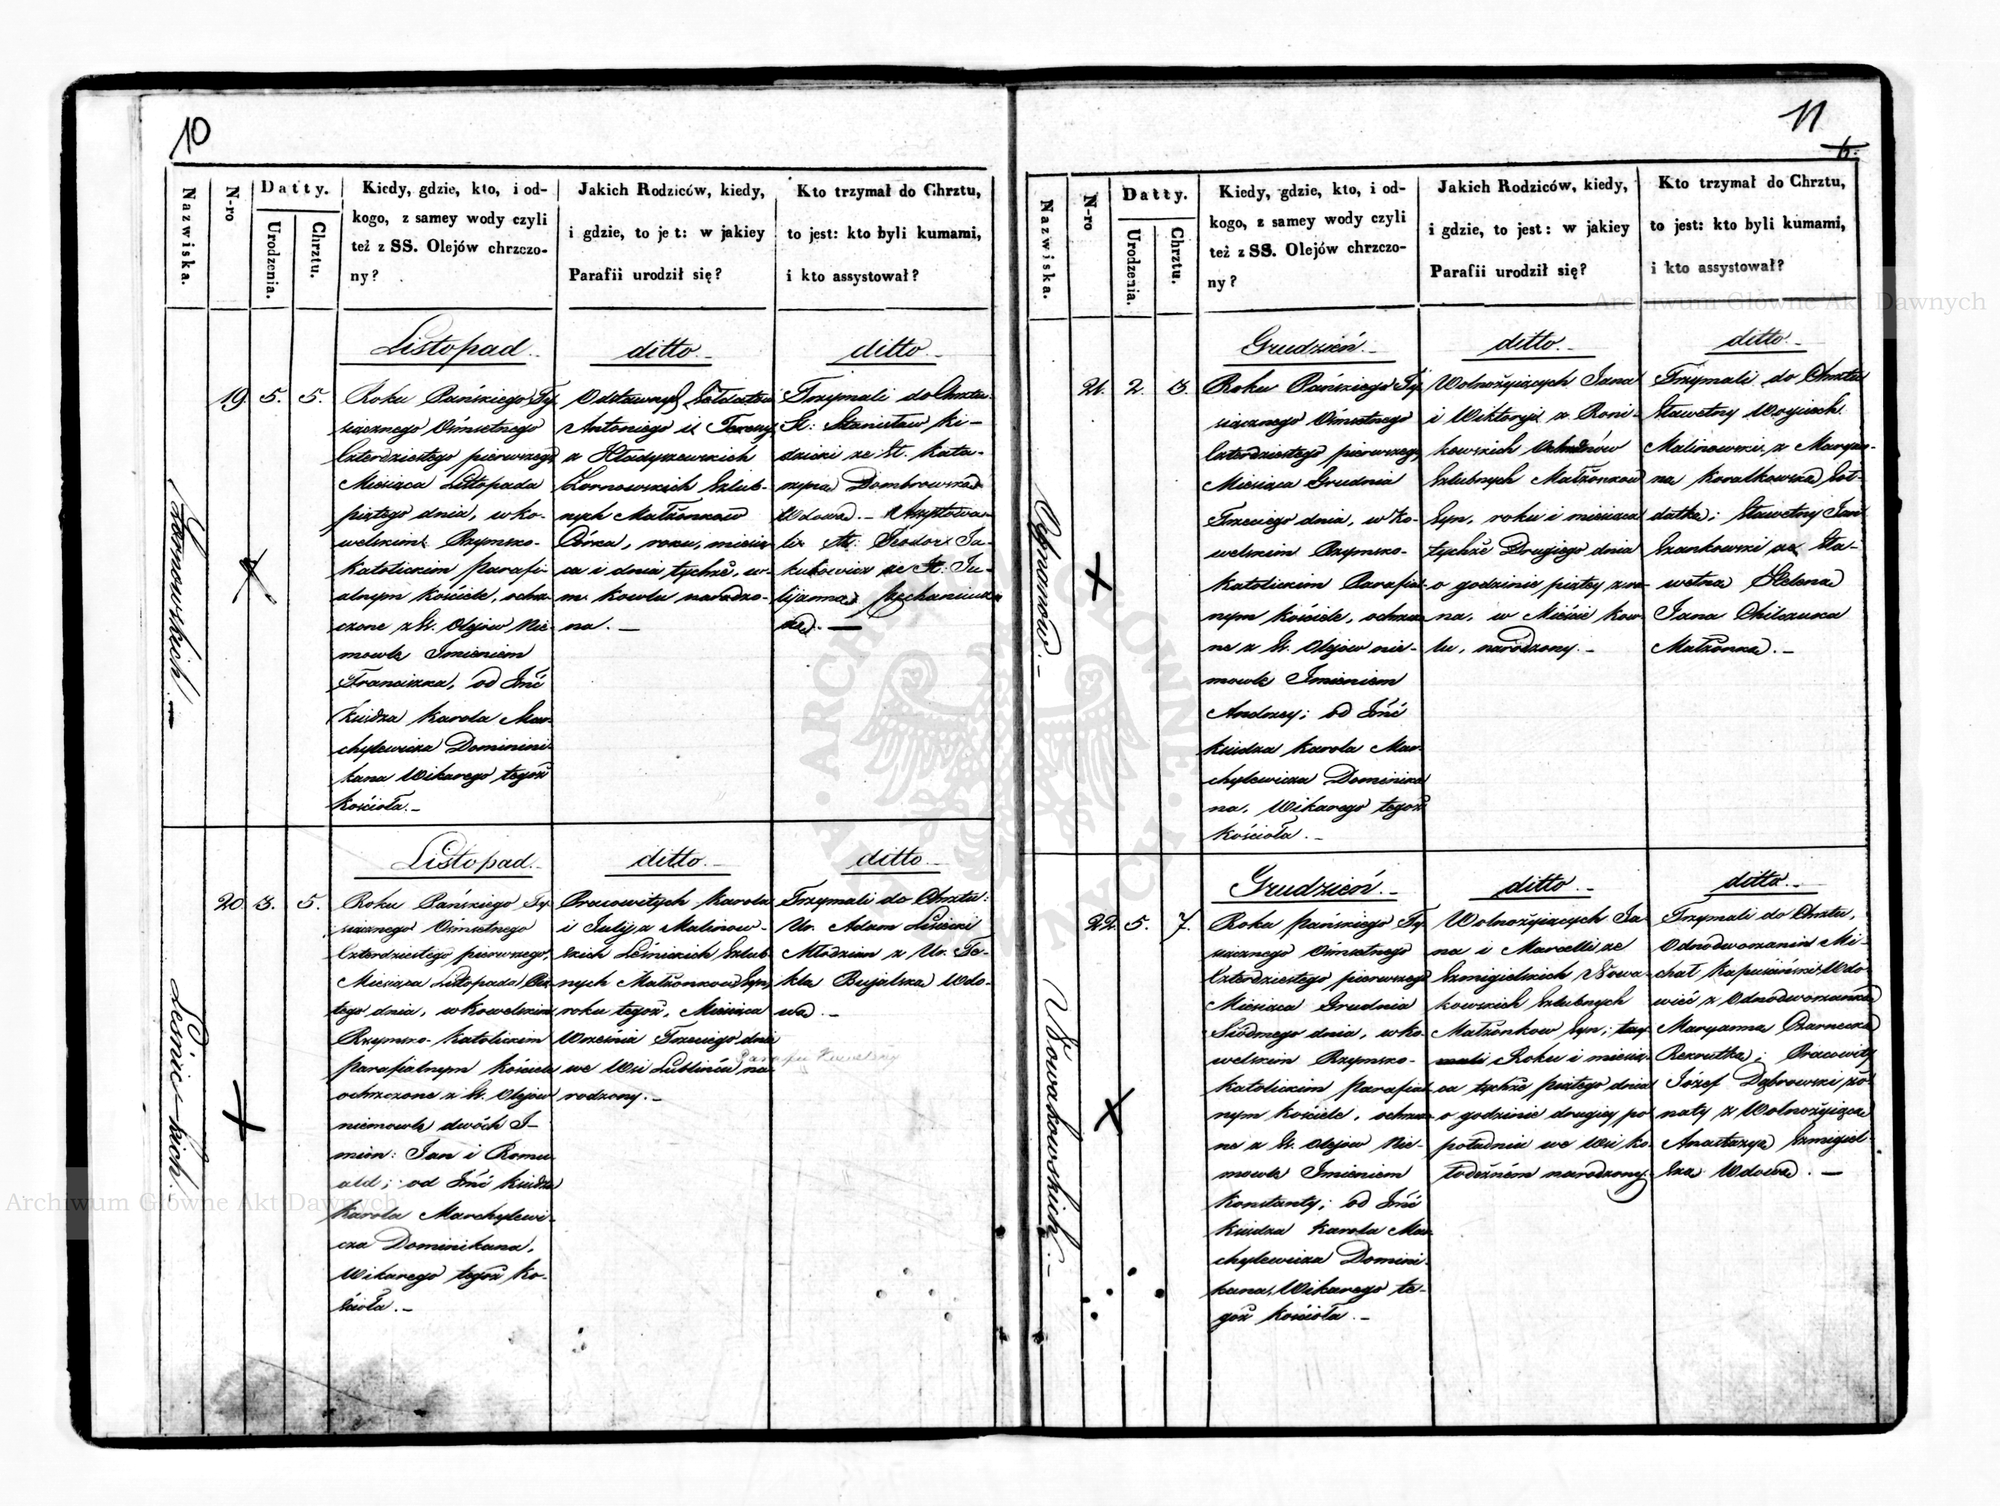 10
Nazwiska.
N-ro
Datty.
Urodzenia.
Chrztu.
Kiedy, gdzie, kto, i od-
kogo, z samey wody czyli
też z SS. Olejów chrzczo-
ny?
Jakich Rodziców, kiedy,
i gdzie, to jest: w jakiey
Parafii urodził się?
Kto trzymał do Chrztu,
to jest: kto byli kumami,
i kto assystował?
19. 5. 5.
Listopad.
Roku Pańskiego Ty-
siącznego Ośmsetnego
Czterdziestego pierwszego
Miesiąca Listopada
piątego dnia, w Ko-
welskim Rzymsko-
Katolickim Parafi-
alnym Kościele, ochrz-
czone z St. Olejów Nie-
mowle Imieniem
Franciszka, od Jmć
Księdza Karola Mar-
chylewicza Domini-
kana Wikarego tegoż
Kościoła.-
ditto.-
Odstawnych Sołdatów
Antoniego i Teressy
z Hładyszewskich
Szlub-
nych Małżonków
Córka, roku, miesią-
ca i dnia tychże, w
m. Kowlu narodzo-
na.-
ditto.-
Trzymali do Chrztu
St: Stanisław Ki-
ze St. Kata-
rzyną Dombrowską
Wdową.-
St: Teodor Ja-
kubowicz ze St. Ju-
lijanną
Lesnickich.
20 3. 5.
Listopad.-
Roku Pańskiego Ty-
siącznego Ośmsetnego
Czterdziestego pierwszego,
Miesiąca Listopada Pią-
tego dnia, w Kowelskim
Rzymsko-Katolickim
parafialnym Kościele
ochrzczone z St. Olejów
niemowle dwóch I-
mion: Jan i Romu-
ald; od Jmć Księdza
Karola Marchylewi-
cza Dominikana,
Wikarego tegoż Ko-
ścioła.-
ditto.-
Pracowitych Karola
i Julij z Malinow-
skich Leśnickich Szlub-
nych Małżonków Syn,
roku tegoż, Miesiąca
Września Trzeciego dnia
we Wsi Lublińcu na-
rodzony.-
ditto.-
Trzymali do Chrztu:
Ur. Adam
Młodzian z Ur. Te-
klą Bujalską Wdo-
wą.-
11
Nazwiska.
N-ro
Datty.
Urodzenia.
Chrztu.
Kiedy, gdzie, kto, i od-
kogo, z samey wody czyli
też z SS. Olejów chrzczo-
ny?
Jakich Rodziców, kiedy,
i gdzie, to jest: w jakiey
Parafii urodził się?
Kto trzymał do Chrztu,
to jest: kto byli kumami,
i kto assystował?
21. 2. 3.
Grudzień.-
Roku Pańskiego Ty-
siącznego Ośmsetnego
Czterdziestego pierwszego
Miesiąca Grudnia
Trzeciego dnia, w Ko-
welskim Rzymsko-
Katolickim Parafial-
nym Kościele, ochrzczo-
ne z St. Olejów nie-
mowle Imieniem
Andrzey; od Jmć
Księdza Karola Mar-
chylewicza Dominika-
na, Wikarego tegoż
Kościoła.-
ditto.-
Wolnożyiących Jana
i Wiktoryi z Roni-
kowskich
Szlubnych Małżonków
Syn, roku i miesiąca
tychże Drugiego dnia
o godzinie piątey z ra-
na, w Mieście Kow-
lu, narodzony.-
ditto.-
Trzymali do Chrztu
Sławetny Woyciech
Malinowski z Maryan-
ną Kowalkowską Soł-
datką; Sławetny Jan
Szankowski ze Sła-
wetną Heleną
Jana Chilczuka
Małżonką.-
Nowakowskich.-
22. 5. 7.
Grudzień.-
Roku Pańskiego Ty-
siącznego Ośmsetnego
Czterdziestego pierwszego
Miesiąca Grudnia
Siódmego dnia, w Ko-
welskim Rzymsko-
Katolickim parafial-
nym Kościele, ochrzczo-
ne z St. Olejów Nie-
mowle Imieniem
Konstanty; od Jmć
Księdza Karola Mar-
chylewicza Domini-
kana, Wikarego te-
goż Kościoła.-
ditto.-
Wolnożyiących Ja-
na i Marcelli ze
Szmigielskich Nowa-
kowskich Szlubnych
Małżonków Syn;
Roku i miesią-
ca tychże piątego dnia
o godzinie drugiey po
południu we Wsi Ko-
narodzony.
ditto.-
Trzymali do Chrztu,
Odnodworzanin Mi-
chał Kapuściński Wdo-
wiec z Odnodworzanką
Maryanną Czarnecką
Rekrutką; Pracowity
Józef Dąbrowski żo-
naty z Wolnożyiącą
Anastazyą Szmigiel-
ską Wdową.-
Archiwum Główne Akt Dawnych
Archiwum Główne Akt Dawnych